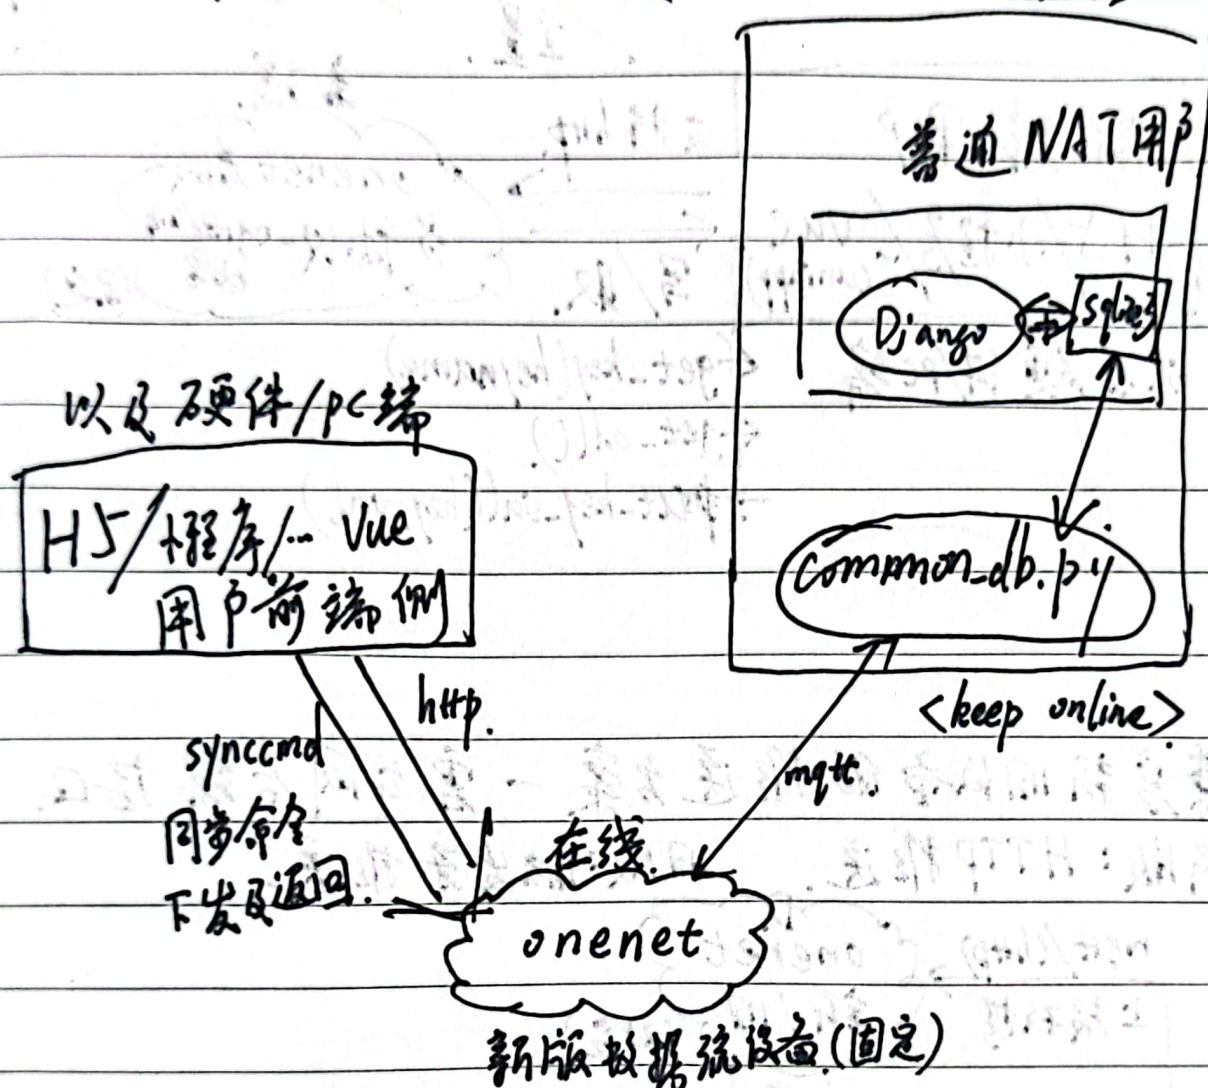 普通NAT用户
Django
sqlite3
以及硬件/pc端
H5/小程序/… Vue
用户前端侧
common_db.py
http.
<keep online>
synccmd
mqtt
同步命令
下发及返回.
在线.
onenet
新版数据流设备.(固定)